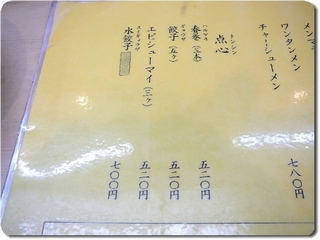 ワンタンメン
チャーシューメン 七八〇円
点心
トンシン
春巻(二本) 五二〇円
ハルマキ
餃子(五ヶ) 五二〇円
ギョウザ
エビシューマイ(三ヶ) 五二〇円
水餃子 七〇〇円
スイギョウザ